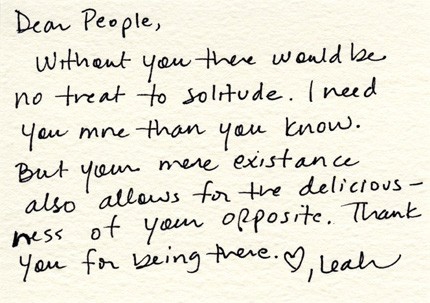 Dear People,
Without you there would be
no treat to solitude. I need
you more than you know.
But your mere existance
also allows for the delicious-
ness of your opposite. Thank
you for being there. ♡, Leah